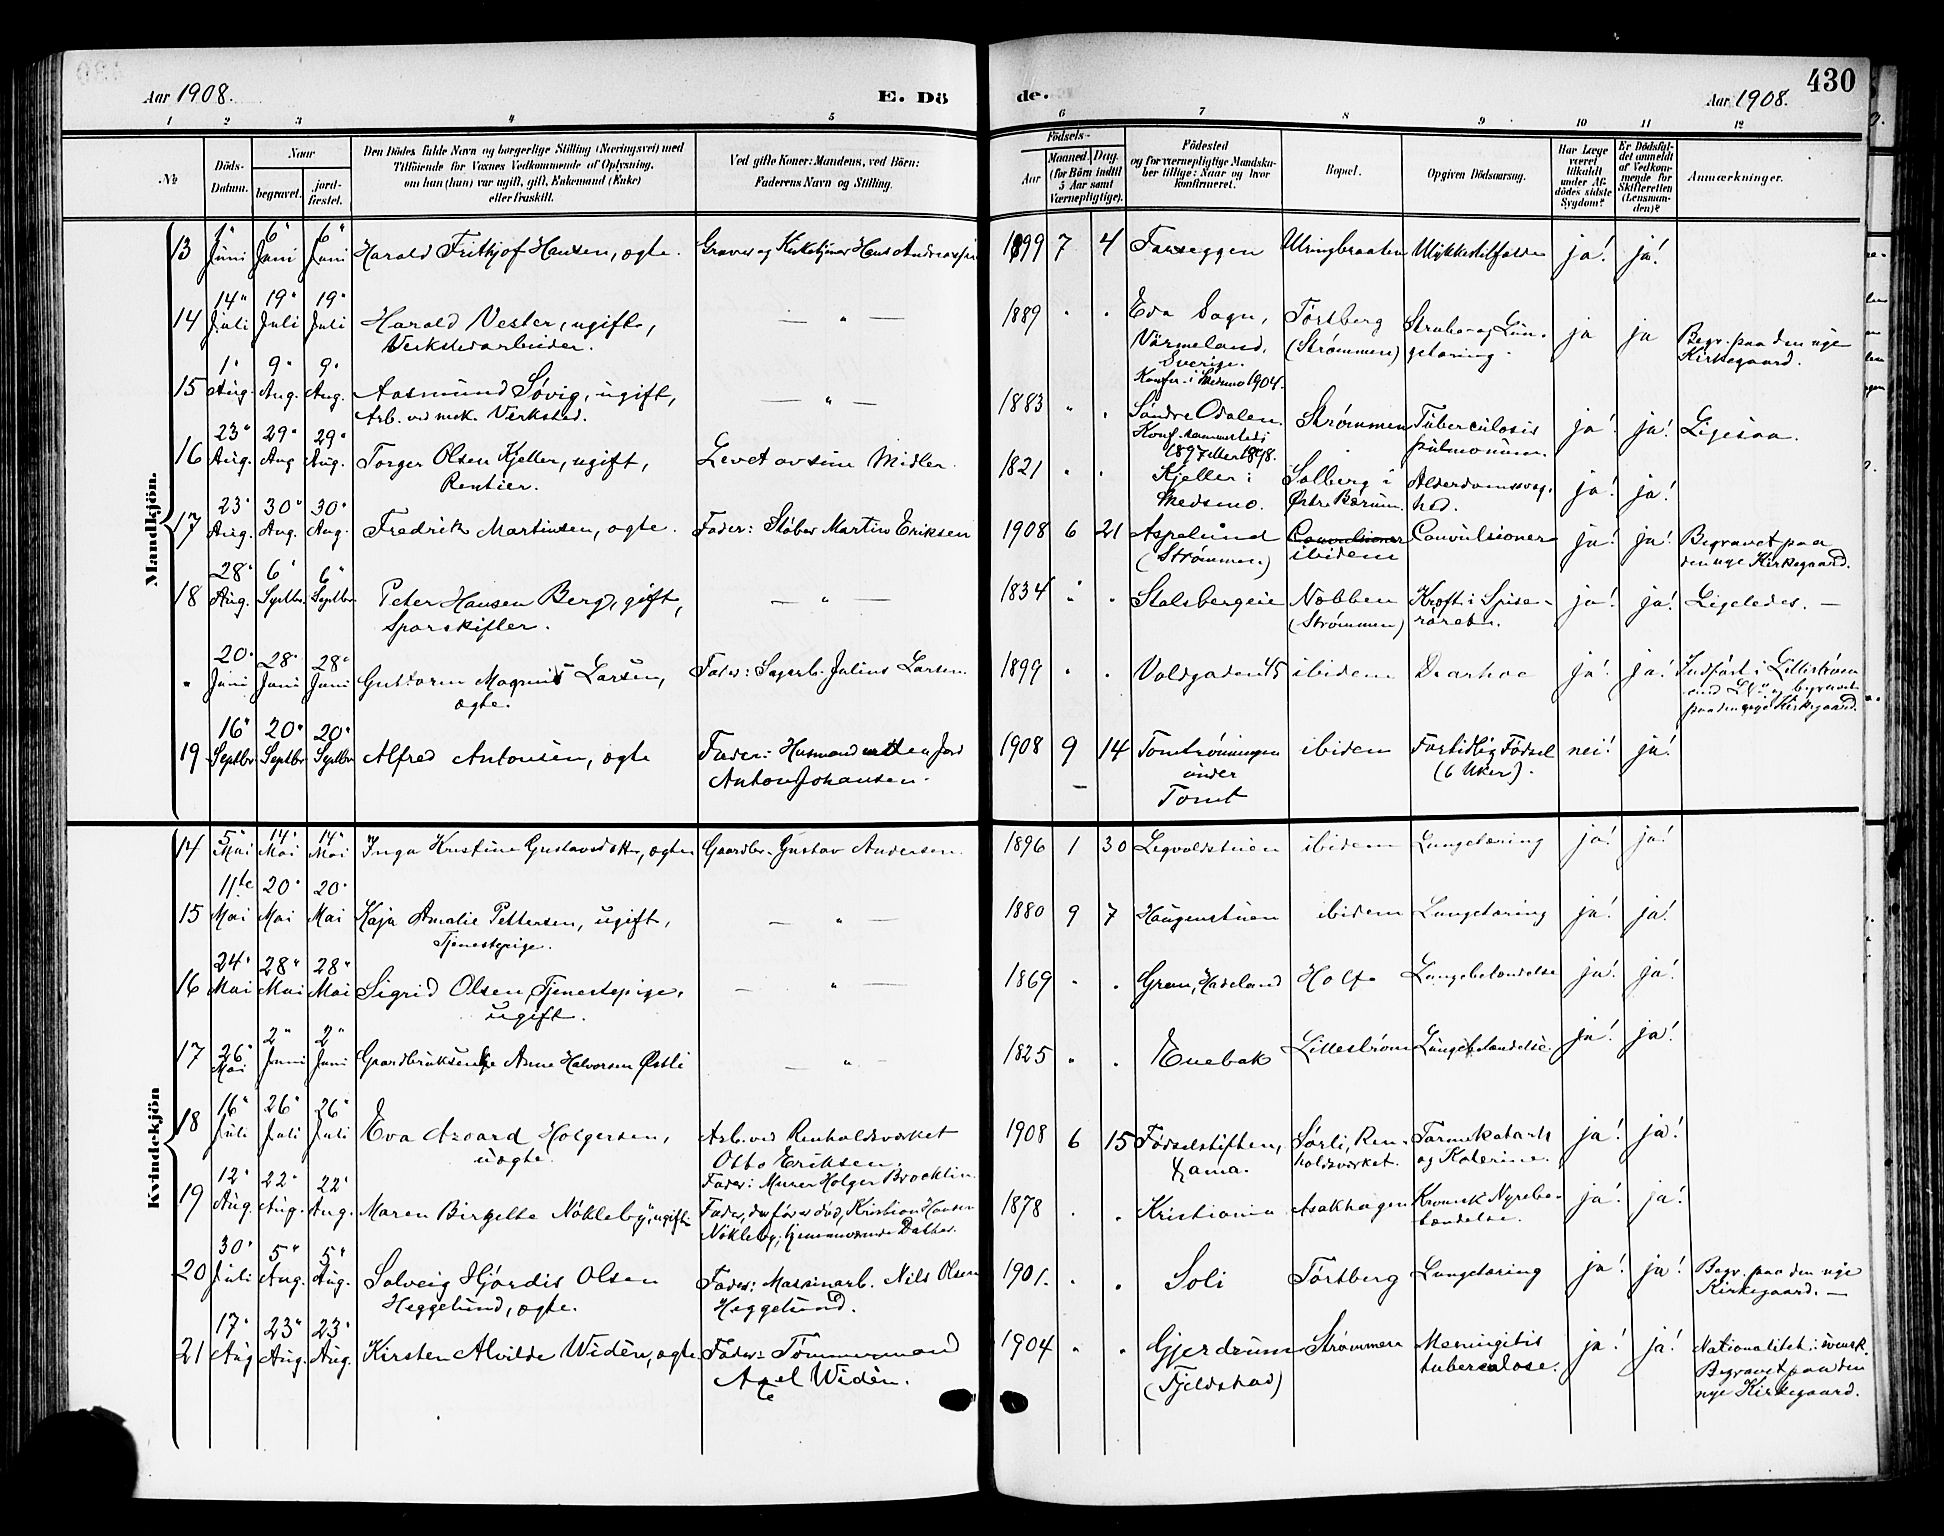 Aar 1908. E. Dö
de. Aar 1908. 430
1 2 3 4 5 6 7 8 9 10 11 12
№ Döds-Datum. Naar begravet. jordfæstet. Den Dödes fulde Navn og borgerlige Stilling (Næringsvei) med Tilföiende for Voxnes Vedkommende af Oplysning, om han (hun) var ugift, gift, Enkemand (Enke) eller fraskilt. Ved gifte Koner: Mandens, ved Börn: Faderens Navn og Stilling.
Födsels- Aar Maaned. Dag. (for Börn indtil 5 Aar samt Værnepligtige). Födested og for værnepligtige Mandskaber tillige: Naar og hvor konfirmeret. Bopæl. Opgiven Dödsaarsag. Har Læge været tilkaldt under Afdödes sidste Sygdom? Er Dödsfaldet anmeldt af Vedkommende for Skifteretten (Lensmanden)? Anmærkninger.
Mandkjön.
13 1" Juni 6" Juni 6" Juni Harald Frithjof Hansen, ægte. Graver og Kirketjener Hans 1899 7 4 ja! ja!
14 14" Juli 19" Juli 19" Juli Harald Vester, ugift, — " — 1889 " " Eda Sogn, Tørtberg Strube- og Lun- ja ja Begr. paa den nye
Verkstedarbeider. Värmeland, (Strømmen) getæring. Kirkegaard.
Sverige.
Konf. i 1904.
15 1" Aug. 9" Aug. 9" Aug. Aasmund Søvig, ugift, — " — 1883 " " Søndre Odalen. Strømmen Tuberculosis ja! ja! Ligesaa.
Arb. ved mek. Verksted. Konf. sammesteds pulmonum.
1897 eller 1898.
16 23" Aug. 29" Aug 29" Aug. Torger Olsen Kjeller, ugift, Levet av sine Midler. 1821 " " Kjeller i Solberg i Alderdomssvag- ja! ja!
Rentier. Østre Bærum. hed.
17 23" Aug. 30" Aug. 30" Aug. Fredrik Martinsen, ægte. Fader: Støber Martin Eriksen 1908 6 21 Aspelund Convulsioner Convulsioner ja! ja! Begravet paa
(Strømmen.) ibidem den nye Kirkegaard.
18 28" Aug. 6" Septbr. 6" Septbr. Peter Hansen Berg, gift, — " — 1834 " " Stalsbergeie Nobben Kræft i Spise- ja! ja! Ligeledes. —
Sporskifter. (Strømmen) røret.
" 20" Juni 28" Juni 28" Juni Guttorm Magnus Larsen, Fader: Sagarb. Julius Larsen. 1899 " " Voldgaden 45 ibidem Diarhoe ja! ja! Indført i Lillestrøm
ægte. begravet
paa den nye Kirkegaard.
19 16" Septbr. 20" Septbr. 20" Septbr. Alfred Antonsen, ægte Fader: Husmand uten Jord 1908 9 14 Tomtrøningen ibidem Fortidlig Fødsel nei! ja!
Anton Johansen. under (6 Uker).
Tomt
Kvindekjön
14 5" Mai 14" Mai 14" Mai Inga Kristine Gustavsdatter, ægte Gaardbr. Gustav Andersen. 1896 1 30 ibidem Lungetæring ja! ja!
15 11te Mai 20" Mai 20" Mai Kaja Amalie Pettersen, ugift, — " — 1880 9 7 Haugenstuen ibidem Lungetæring ja! ja!
Tjenestepige.
16 24" Mai 28" Mai 28" Mai Sigrid Olsen, Tjenestepige, — " — 1869 " " Gran, Hadeland Holt Lungebetændelse ja! ja!
ugift.
17 26" Mai 2" Juni 2" Juni Gaardbrukerenke Anne Halvorsen Østli — " — 1825 " " Enebak Lillestrøm Lungebetændelse. ja! ja!
18 16" Juli 26" Juli 26" Juli Eva Holgersen, Arb. ved Renholdsverket 1908 6 15 Fødselstiften, Sørli, Ren- Tarmkatarh ja! ja!
uægte. Otto Eriksen. Xania. holdsverket.
Fader: Murer Holger
19 12" Aug. 22" Aug. 22" Aug. Maren Birgitte Nökleby, ugift Fader, der før er død, Kristian Hansen 1878 " " Kristiania Asakhagen Kronisk Nyrebe- ja! ja!
Nökleby; tændelse.
20 30" Juli 5" Aug. 5" Aug. Solveig Hjørdis Olsen Fader: Maskinarb. Nils Olsen 1901. " " Soli Tørtberg Lungetæring ja! ja! Begr. paa den nye
Heggelund, ægte. Heggelund. Kirkegaard. —
21 17" Aug 23" Aug. 23" Aug. Kirsten Alvilde Widèn, ægte Fader: Tømmermand 1904 " " Gjerdrum Strømmen Meningitis ja! ja! Nationalitet: svensk.
Axel Widèn. (Fjeldstad) tuberculose. Begravet paa den
nye Kirkegaard.